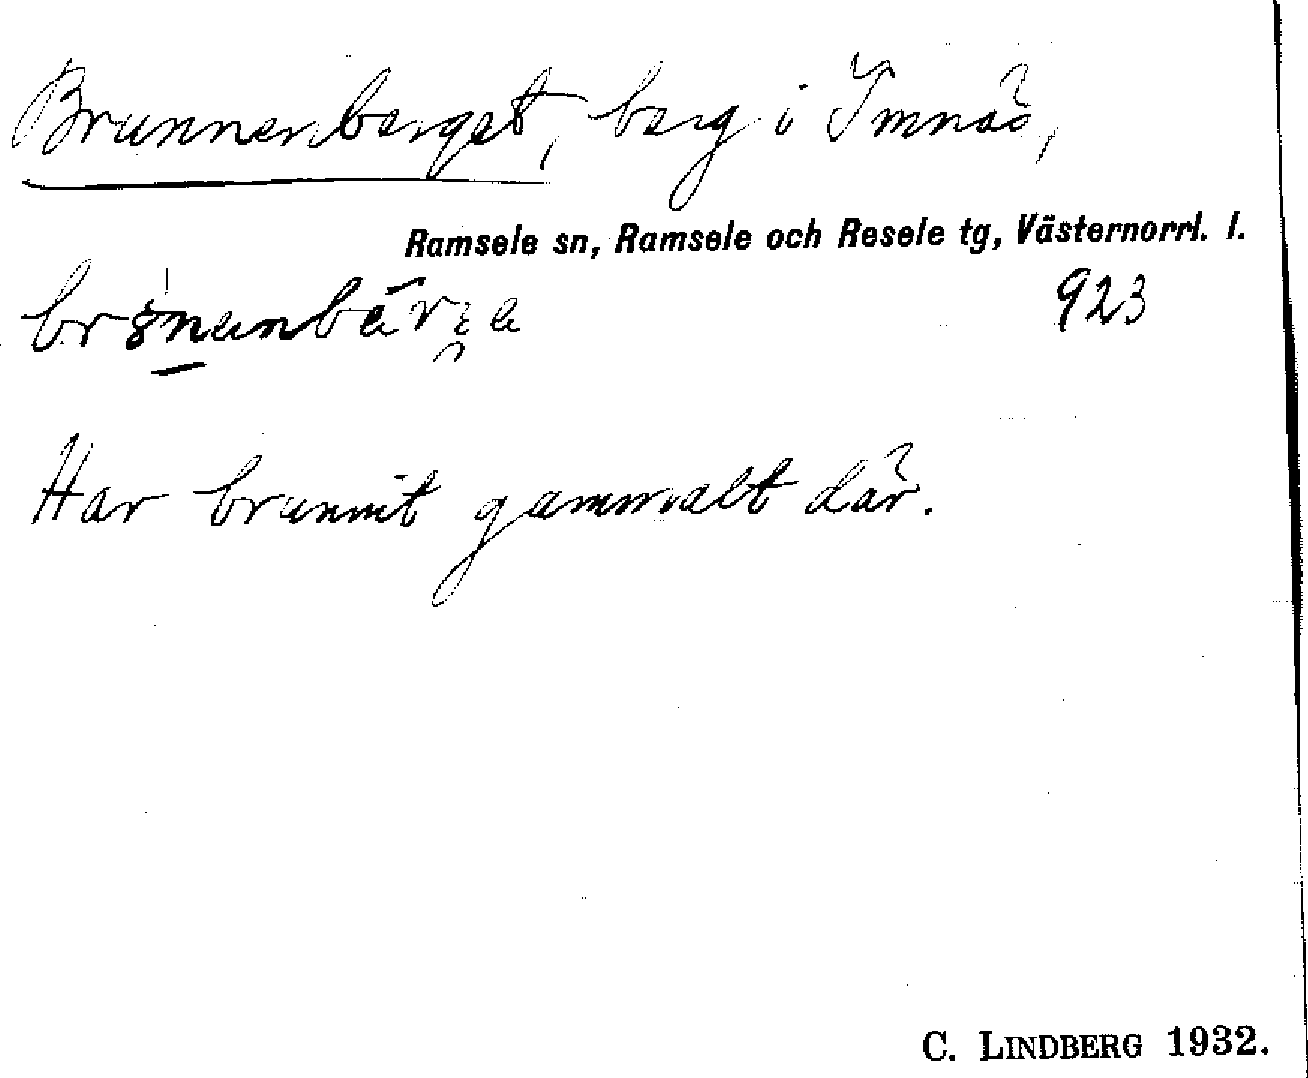 Brunnenberget, berg i Imnäs,
Ramsele sn, Ramsele och Resele tg, Västernorrl. l.
923
Har brunnit gammalt där.
C. LINDBERG 1932.